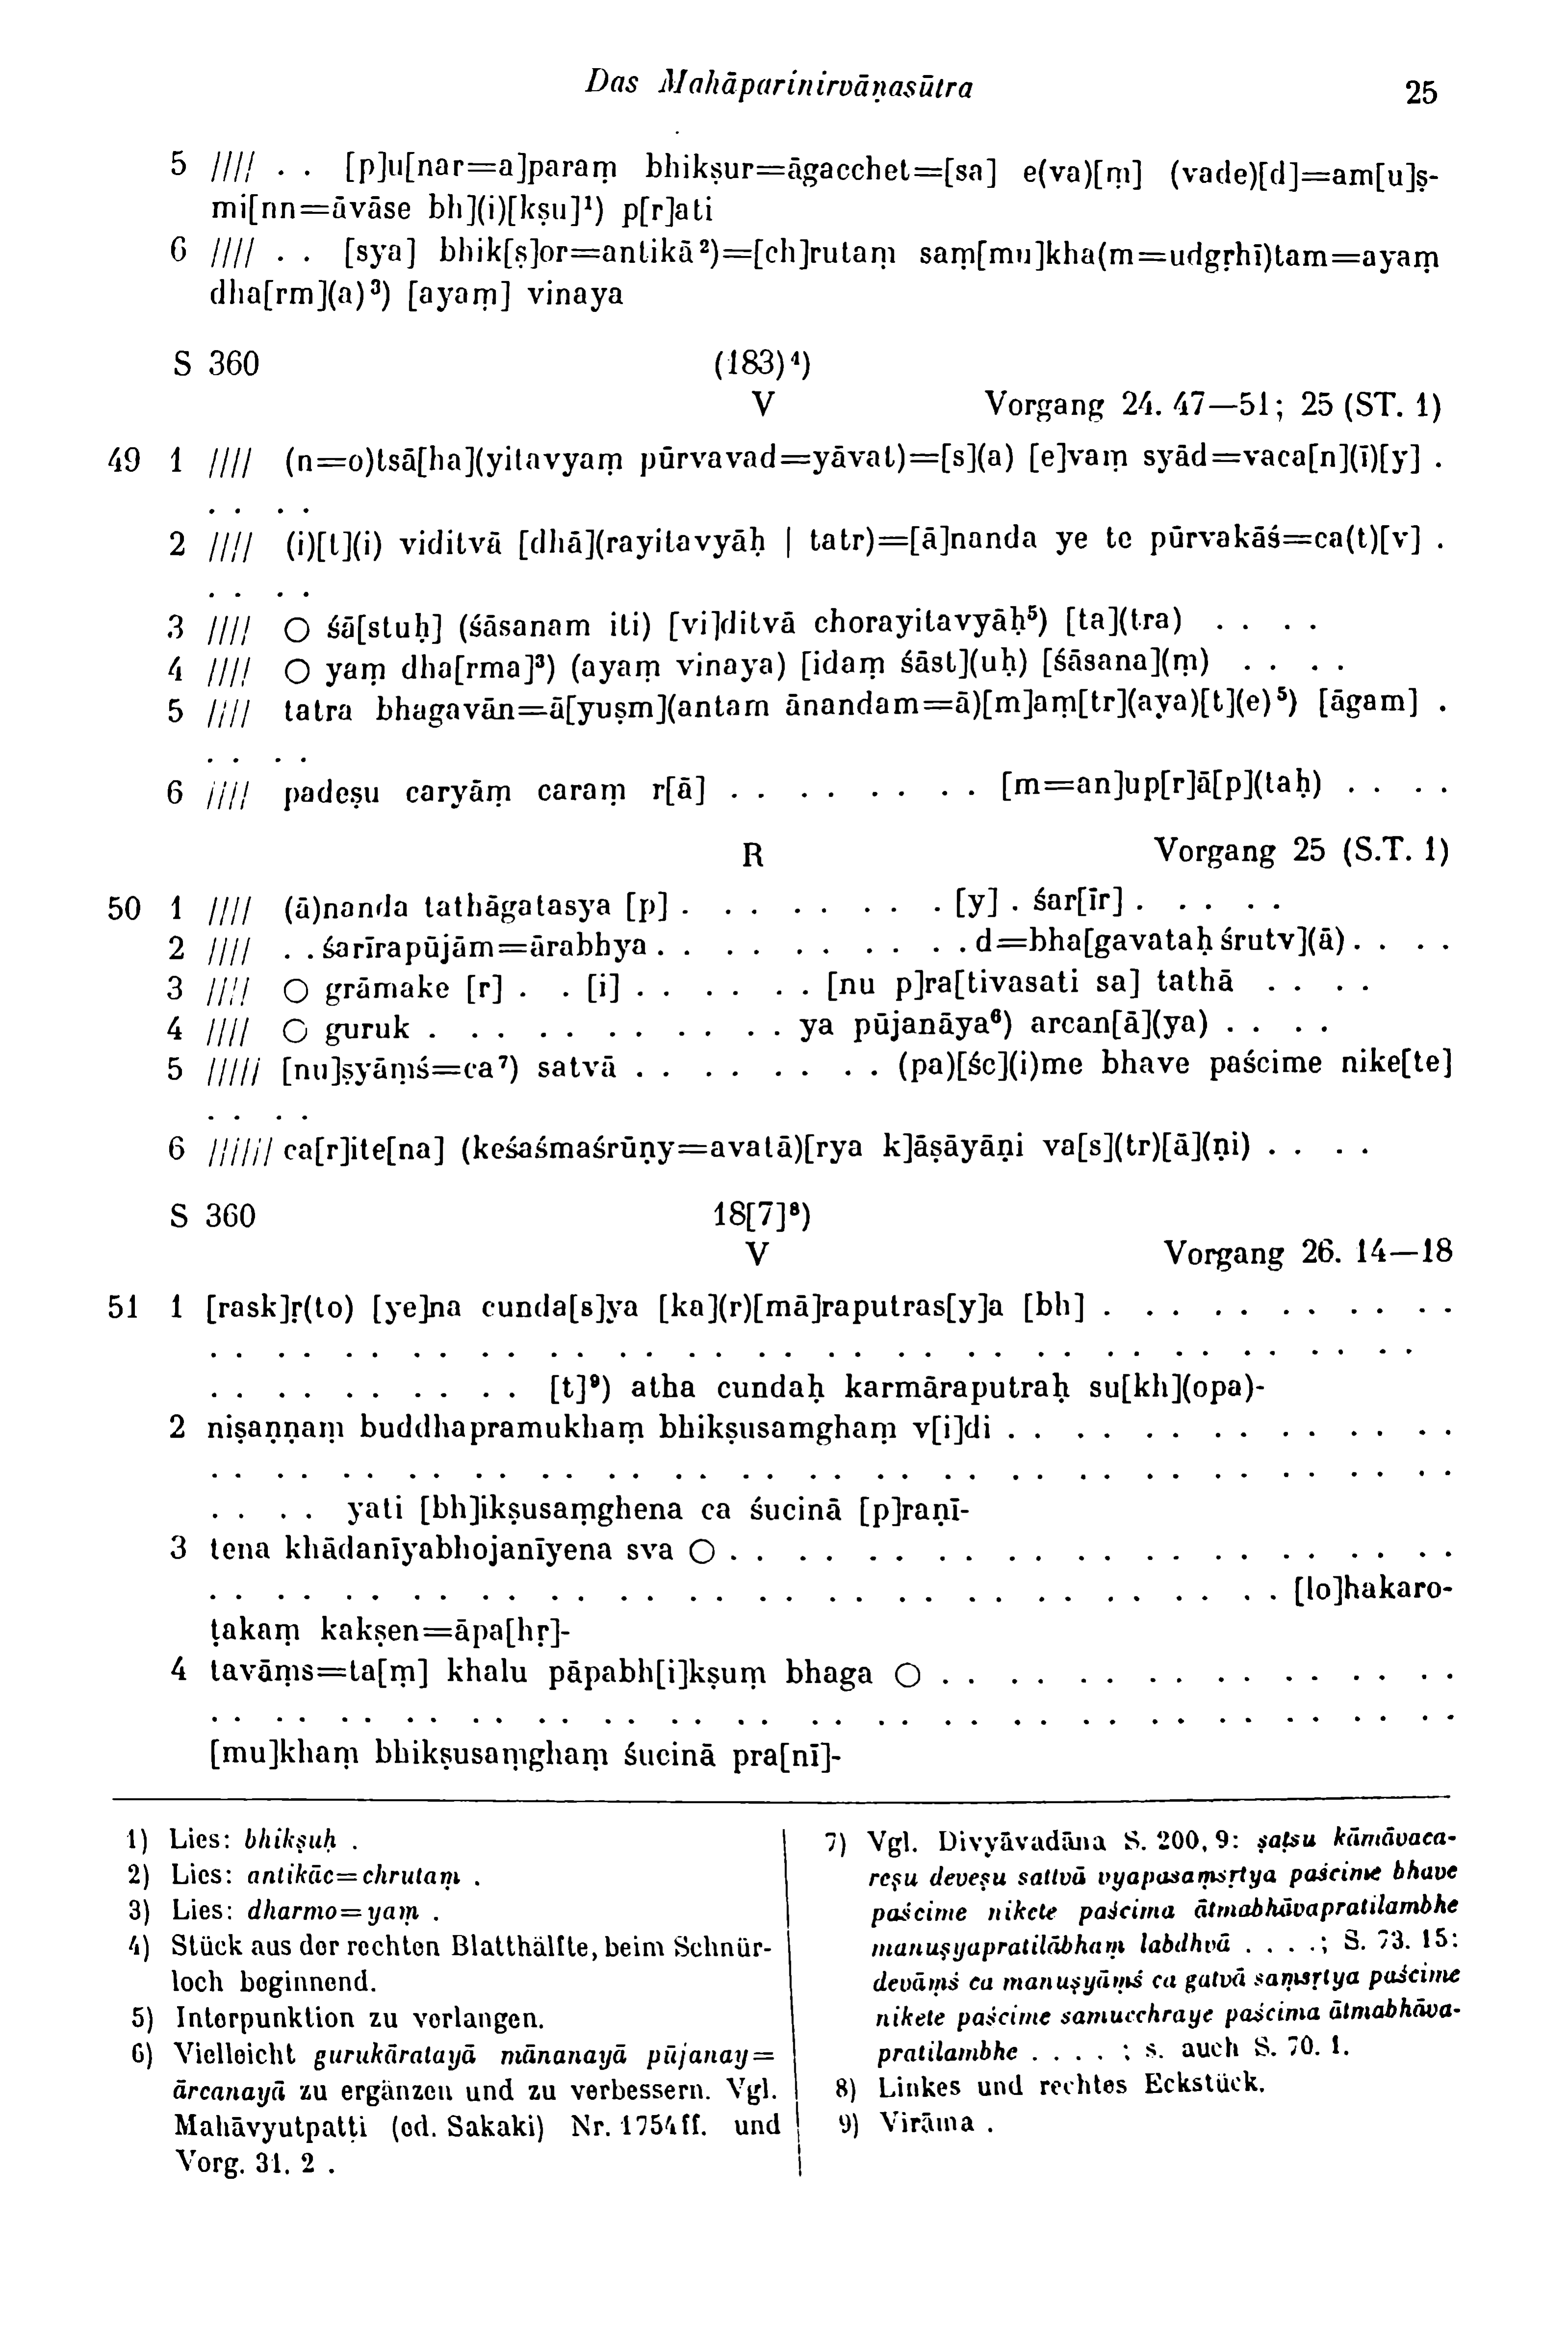 Das Mahāparinirvāṇasūtra 25
5 //// . . [p]u[nar=a]paraṃ bhikṣur=āgacchet=[sa] e(va)[ṃ] (vade)[d]=am[u]ṣ-
mi[nn=āvāse bh](i)[kṣu]¹) p[r]ati
6 //// . . [sya] bhik[ṣ]or=antikā²)=[ch]rutaṃ saṃ[mu]kha(m=udgṛhī)tam=ayaṃ
dha[rm](a)³) [ayaṃ] vinaya
S 360 (183)⁴)
V Vorgang 24. 47—51; 25 (ST. 1)
49 1 //// (n=o)tsā[ha](yitavyaṃ pūrvavad=yāvat)=[s](a) [e]vaṃ syād=vaca[n](ī)[y] .
. . . .
2 //// (i)[t](i) viditvā [dhā](rayitavyāḥ | tatr)=[ā]nanda ye te pūrvakāś=ca(t)[v] .
. . . .
3 //// ○ śā[stuḥ] (śāsanam iti) [vi]ditvā chorayitavyāḥ⁵) [ta](tra) . . . .
4 //// ○ yaṃ dha[rma]³) (ayaṃ vinaya) [idaṃ śāst](uḥ) [śāsana](ṃ) . . . .
5 //// tatra bhagavān=ā[yuṣm](antam ānandam=ā)[m]aṃ[tr](aya)[t](e)⁵) [āgam] .
. . . .
6 //// padeṣu caryāṃ caraṃ r[ā] . . . . . . . . [m=an]up[r]ā[p](taḥ) . . . .
R Vorgang 25 (S.T. 1)
50 1 //// (ā)nanda tathāgatasya [p] . . . . . . . . [y] . śar[īr] . . . . .
2 //// . . śarīrapūjām=ārabhya . . . . . . . . . . d=bha[gavataḥ śrutv](ā) . . . .
3 //// ○ grāmake [r] . . [i] . . . . . . . [nu p]ra[tivasati sa] tathā . . . .
4 //// ○ guruk . . . . . . . . . . . ya pūjanāya⁶) arcan[ā](ya) . . . .
5 ///// [nu]ṣyāṃś=ca⁷) satvā . . . . . . . . (pa)[śc](i)me bhave paścime nike[te]
. . . .
6 ////// ca[r]ite[na] (keśaśmaśrūṇy=avatā)[rya k]āṣāyāṇi va[s](tr)[ā](ṇi) . . . .
S 360 18[7]⁸)
V Vorgang 26. 14—18
51 1 [rask]ṛ(to) [ye]na cunda[s]ya [ka](r)[mā]raputras[y]a [bh] . . . . . . . . . . .
. . . . . . . . . . . . . . . . . . . . . . . . . . . . . . . . . . . .
. . . . . . . . . . [t]⁹) atha cundaḥ karmāraputraḥ su[kh](opa)-
2 niṣaṇṇaṃ buddhapramukhaṃ bhikṣusamghaṃ v[i]di . . . . . . . . . . . . . .
. . . . . . . . . . . . . . . . . . . . . . . . . . . . . . . . . . . . . .
. . . . yati [bh]ikṣusaṃghena ca śucinā [p]raṇī-
3 tena khādanīyabhojanīyena sva ○ . . . . . . . . . . . . . . . . . . . . . .
. . . . . . . . . . . . . . . . . . . . . . . . . . . . . . . . [lo]hakaro-
ṭakaṃ kakṣen=āpa[hṛ]-
4 tavāṃs=ta[ṃ] khalu pāpabh[i]kṣuṃ bhaga ○ . . . . . . . . . . . . . . . .
. . . . . . . . . . . . . . . . . . . . . . . . . . . . . . . . . . . . . .
[mu]khaṃ bhikṣusaṃghaṃ śucinā pra[nī]-
1) Lies: bhikṣuḥ .
2) Lies: antikāc=chrutaṃ .
3) Lies: dharmo=yaṃ .
4) Stück aus der rechten Blatthälfte, beim Schnür-
loch beginnend.
5) Interpunktion zu verlangen.
6) Vielleicht gurukāratayā mānanayā pūjanay=
ārcanayā zu ergänzen und zu verbessern. Vgl.
Mahāvyutpatti (ed. Sakaki) Nr. 1754ff. und
Vorg. 31. 2 .
7) Vgl. Divyāvadāna S. 200, 9: ṣaṭsu kāmāvaca-
reṣu deveṣu sattvā vyapasaṃsṛtya paścime bhave
paścime nikete paścima ātmabhāvapratilambhe
manuṣyapratilābhaṃ labdhvā . . . .; S. 73. 15:
devāṃś ca manuṣyāṃś ca gatvā saṃsṛtya paścime
nikete paścime samucchraye paścima ātmabhāva-
pratilambhe . . . . ; s. auch S. 70. 1.
8) Linkes und rechtes Eckstück.
9) Virāma .